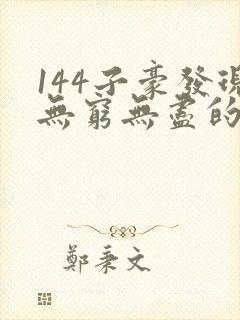 144子豪發現
無窮無盡的
鄭秉文